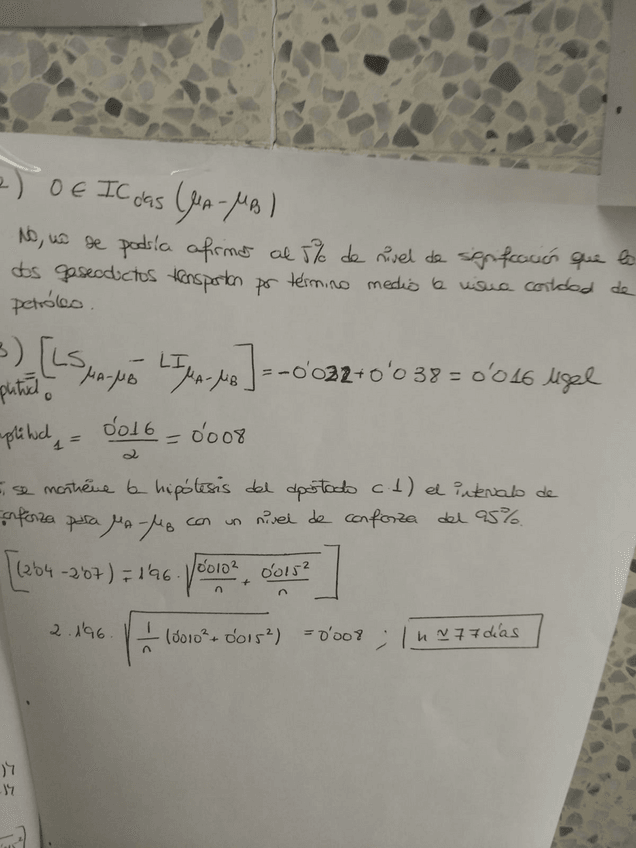 2) 0 ∈ IC0'95 (μA-μB)
No, no se podría afirmar al 5% de nivel de significación que lo
dos gaseoductos transportan por término medio la misma cantidad de
petróleo.
3) [LS μA-μB - LI μA-μB] = -0'022+0'038 = 0'016 Mgal
plitud 0
mplitud 1 = 0'016/2 = 0'008
se mantiene la hipótesis del apartado c.1) el intervalo de
onfianza para μA-μB con un nivel de confianza del 95%.
[(2'04 -2'07) ∓ 1'96 · √(0'010²/n + 0'015²/n)]
2 · 1'96 · √(1/n (0'010² + 0'015²)) = 0'008 ; n ≃ 77 días
17
17